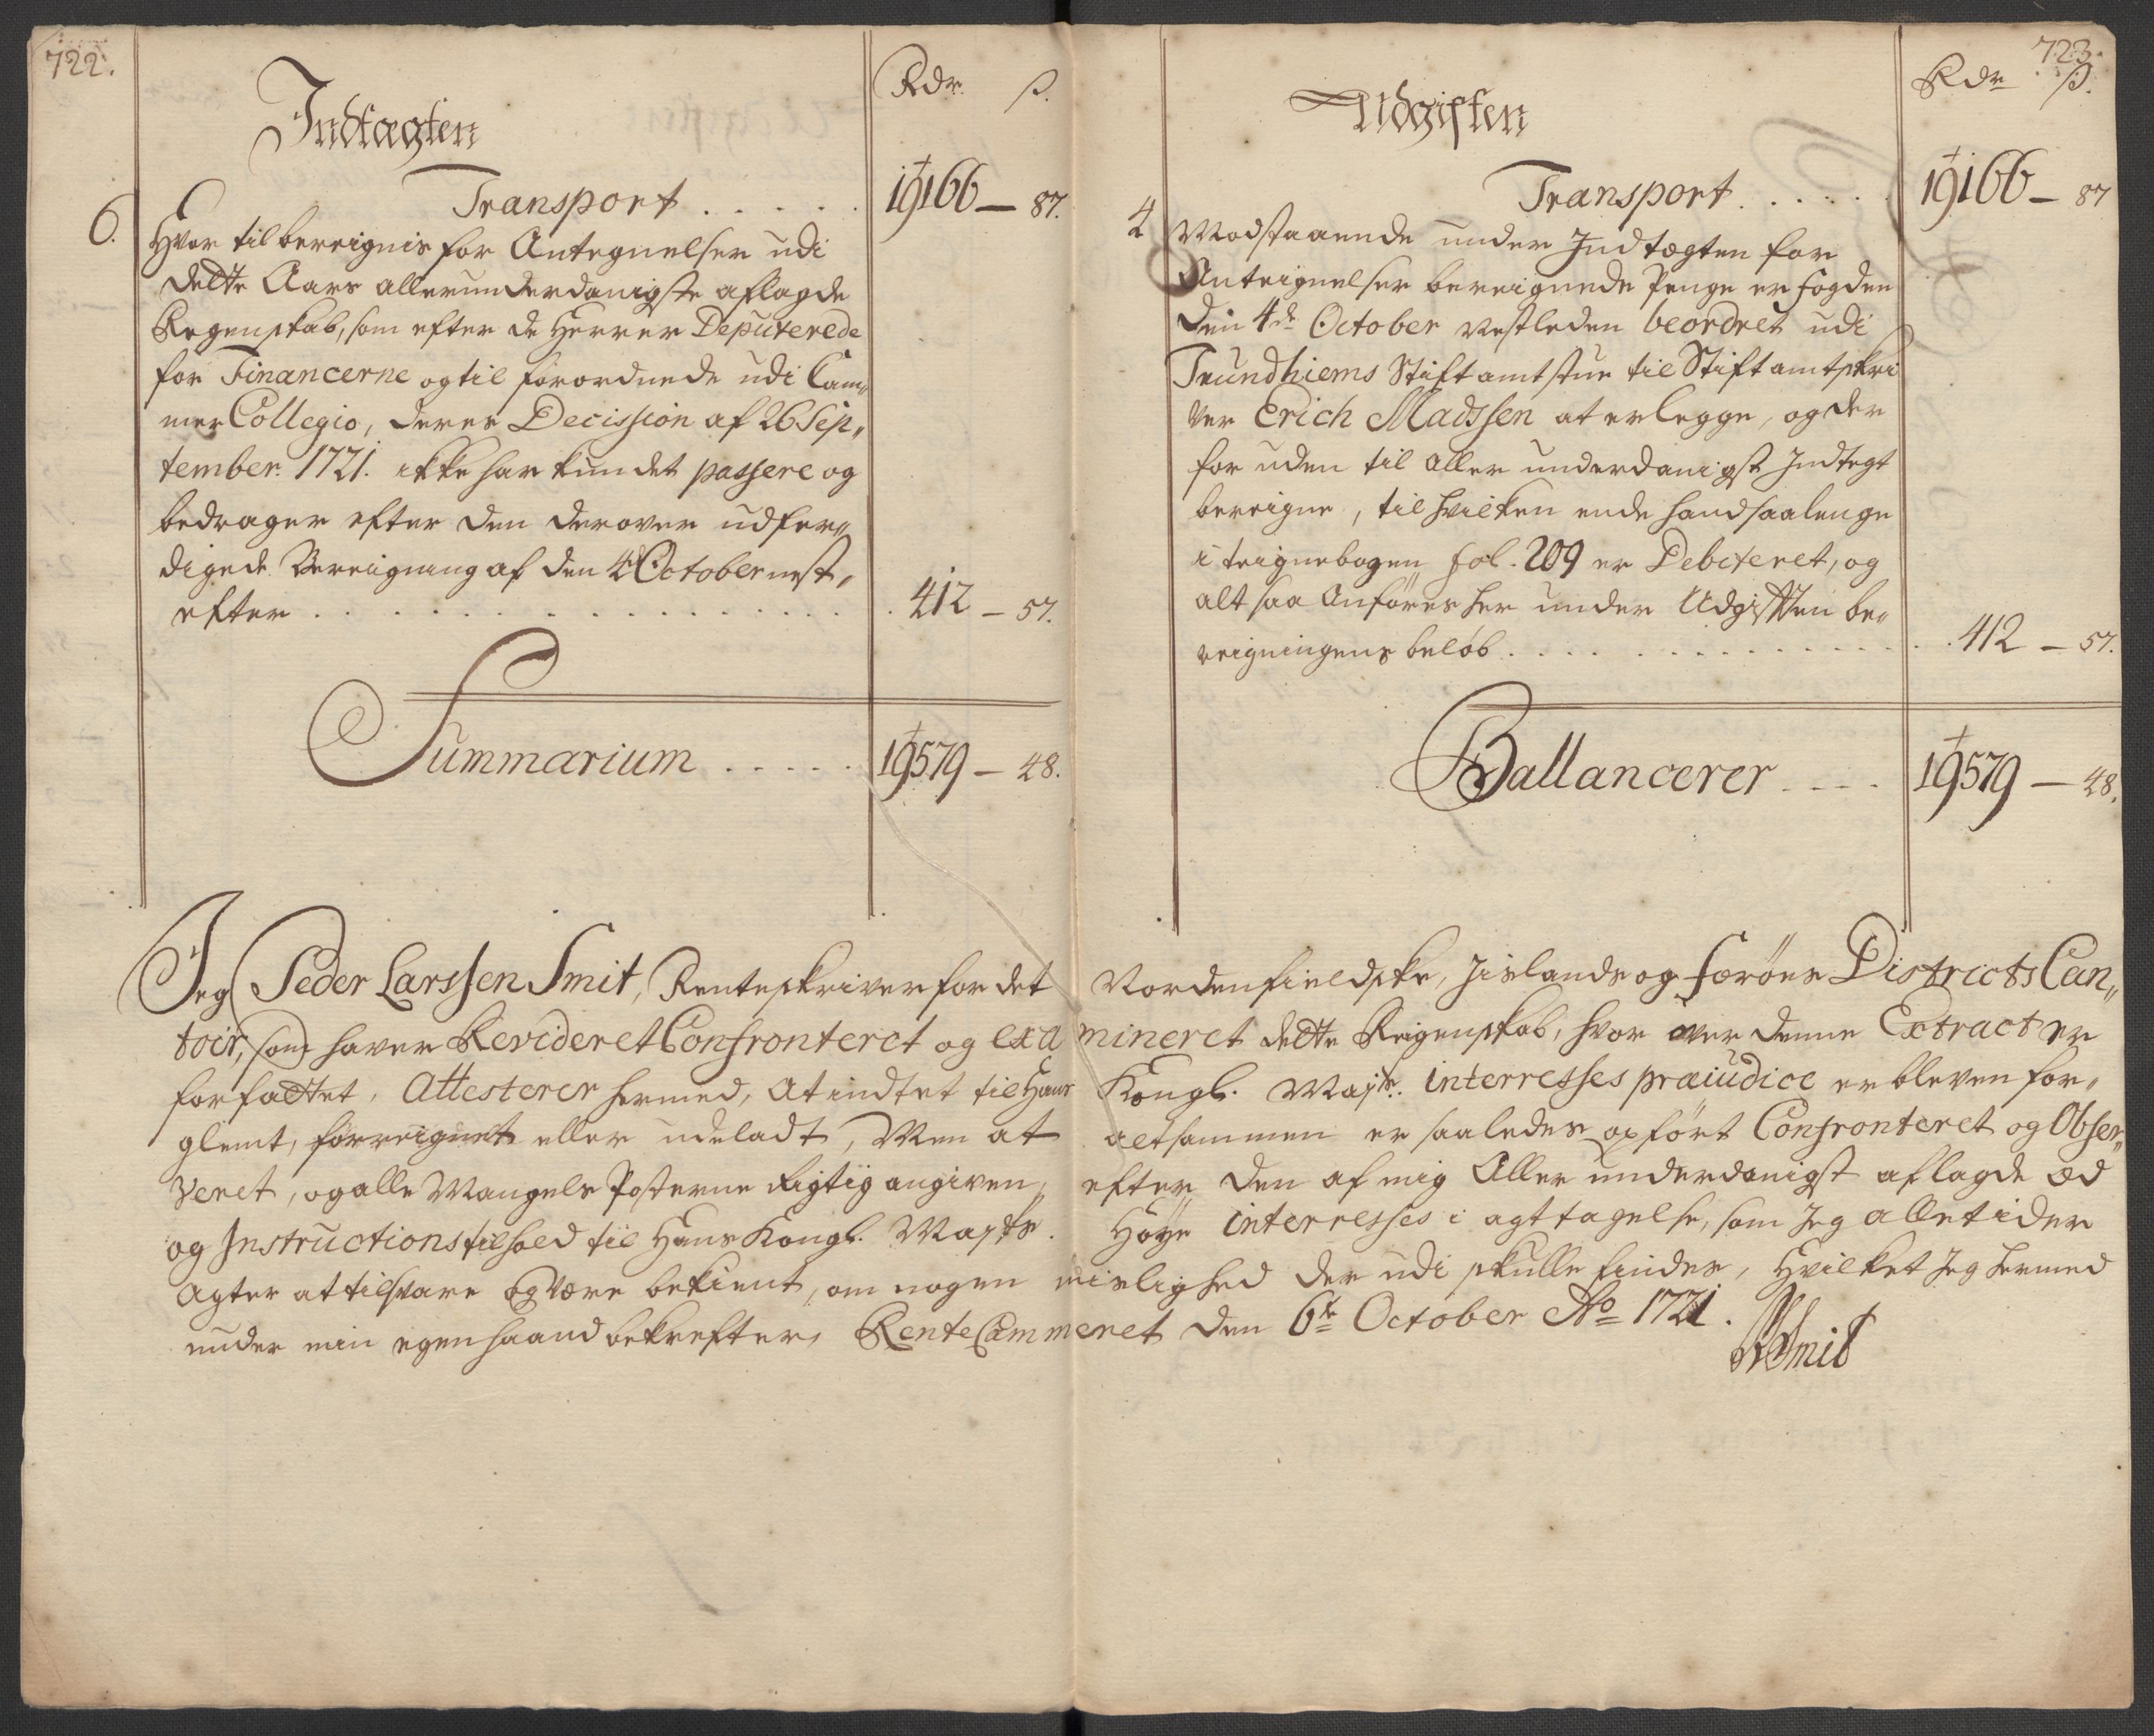 722.
Indtægten
Rdr. ß.
Transport . . . . . 19166 — 87.
6. Hvor til bereignis for Antegnelser udi
dette Aars allerunderdanigste aflagde
Regenskab, som efter de Herrer Deputerede
for Financerne og til forordnede udi Cam„
mer Collegio, deres Decission af 26 Sep„
tember 1721. ikke har kundet passere og
bedrager efter den derover udfer„
digede Bereigning af den 4 October nest„
efter . . . . . . . . . . 412 — 57.
Summarium . . . . . 19579 — 48.
723.
Udgiften
Rdr ß.
Transport . . . . . 19166 — 87
4 Modstaaende under Indtægten for
Anteignelser bereignede Penge er fogden
den 4de October nestleden beordret udi
Trundhiems Stiftamtstue til Stiftamtskri
ver Erich Madssen at erlegge, og der
for uden til aller underdanigst Indtegt
bereigne, til hvilken ende hand saalenge
i teignebogen fol. 209 er Debiteret, og
alt saa Anføres her under Udgifften be„
reigningens beløb . . . . . . . . . . 412 — 57.
Ballancerer . . . . 19579 — 48.
Jeg Peder Larssen Smit, Renteskriver for det Nordenfieldske, Jislands og Færöes Districts Can„
toir, som haver Revideret Confronteret og exa mineret dette Reigenskab, hvor over denne Extract er
forfattet, Attesterer hermed, at indtet til Hans Kongl. Majts. interresses præiudice er bleven for„
glemt, forreignet eller udeladt, Men at altsammen er saaledes opført Confronteret og Obser„
veret, og alle Mangels Posterne Rigtig angiven, efter den af mig Aller underdanigst aflagde Æd
og Instructions tilhold til Hans Kongl. Majts. Høye interresses i agttagelse, som Jeg alle tider
agter at tilsvare og være bekient, om nogen vislighed der udi skulle findes, Hvilket Jeg hermed
under min egen haand bekrefter, RenteCammeret den 6te October Ao 1721.
PLSmit